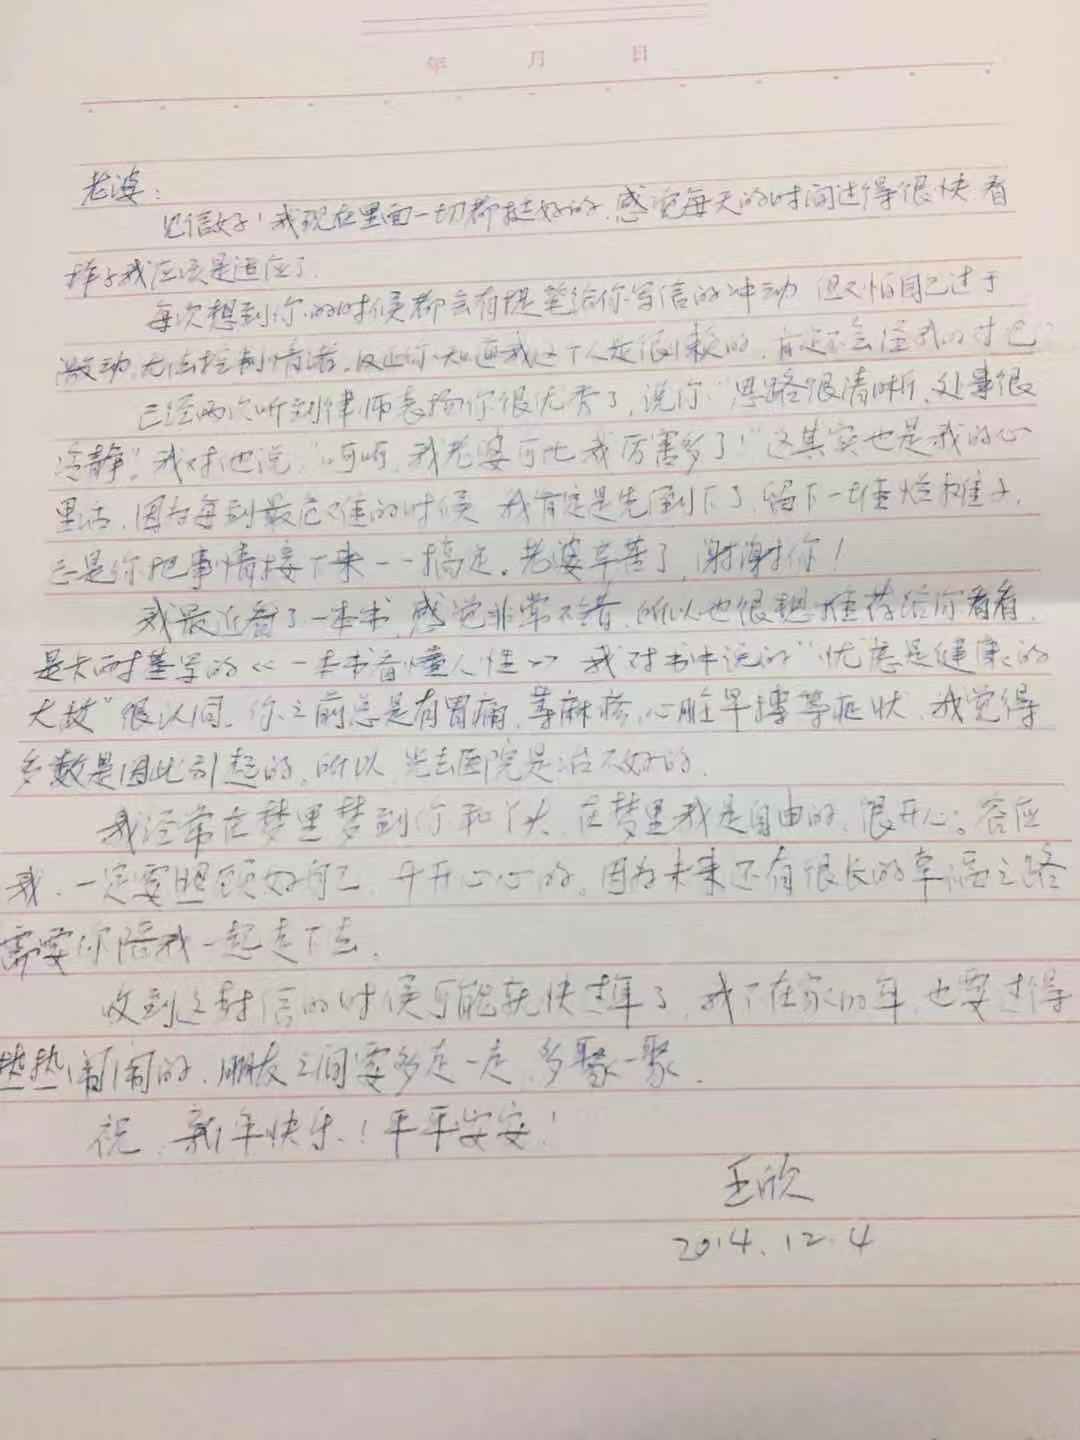 年 月 日
老婆：
见信好！我现在里面一切都挺好的，感觉每天的时间过得很快，看
样子我应该是适应了。
每次想到你的时候都会有提笔给你写信的冲动，但又怕自己过于
激动，无法控制情绪，反正你知道我这个人是很懒的，肯定不会怪我的对吧！
已经两次听到律师表扬你很优秀了，说你“思路很清晰，处事很
冷静”，我对他说，“呵呵，我老婆可比我厉害多了！”这其实也是我的心
里话，因为每到最危难的时候，我肯定是先倒下了，留下一堆烂摊子，
总是你把事情接下来一一搞定。老婆辛苦了，谢谢你！
我最近看了一本书，感觉非常不错，所以也很想推荐给你看看，
是卡耐基写的《一本书看懂人性》，我对书中说的“忧虑是健康的
大敌”很认同，你之前总是有胃痛，荨麻疹，心脏早搏等症状，我觉得
多数是因此引起的，所以，光去医院是治不好的。
我经常在梦里梦到你和丫头，在梦里我是自由的，很开心。答应
我，一定要照顾好自己，开开心心的，因为未来还有很长的幸福之路
需要你陪我一起走下去。
收到这封信的时候可能就快过年了，我不在家的年，也要过得
热热闹闹的，朋友之间要多走一走，多聚一聚。
祝，新年快乐！平平安安！
王欣
2014.12.4